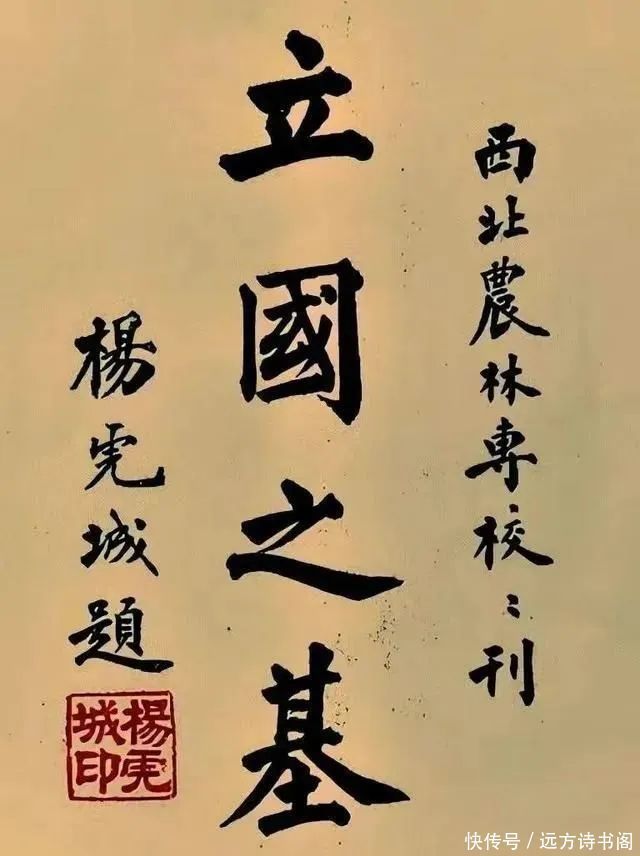 西北農林専校〻刊
立國之基
楊虎城題
楊虎城印
快传号/远方诗书阁